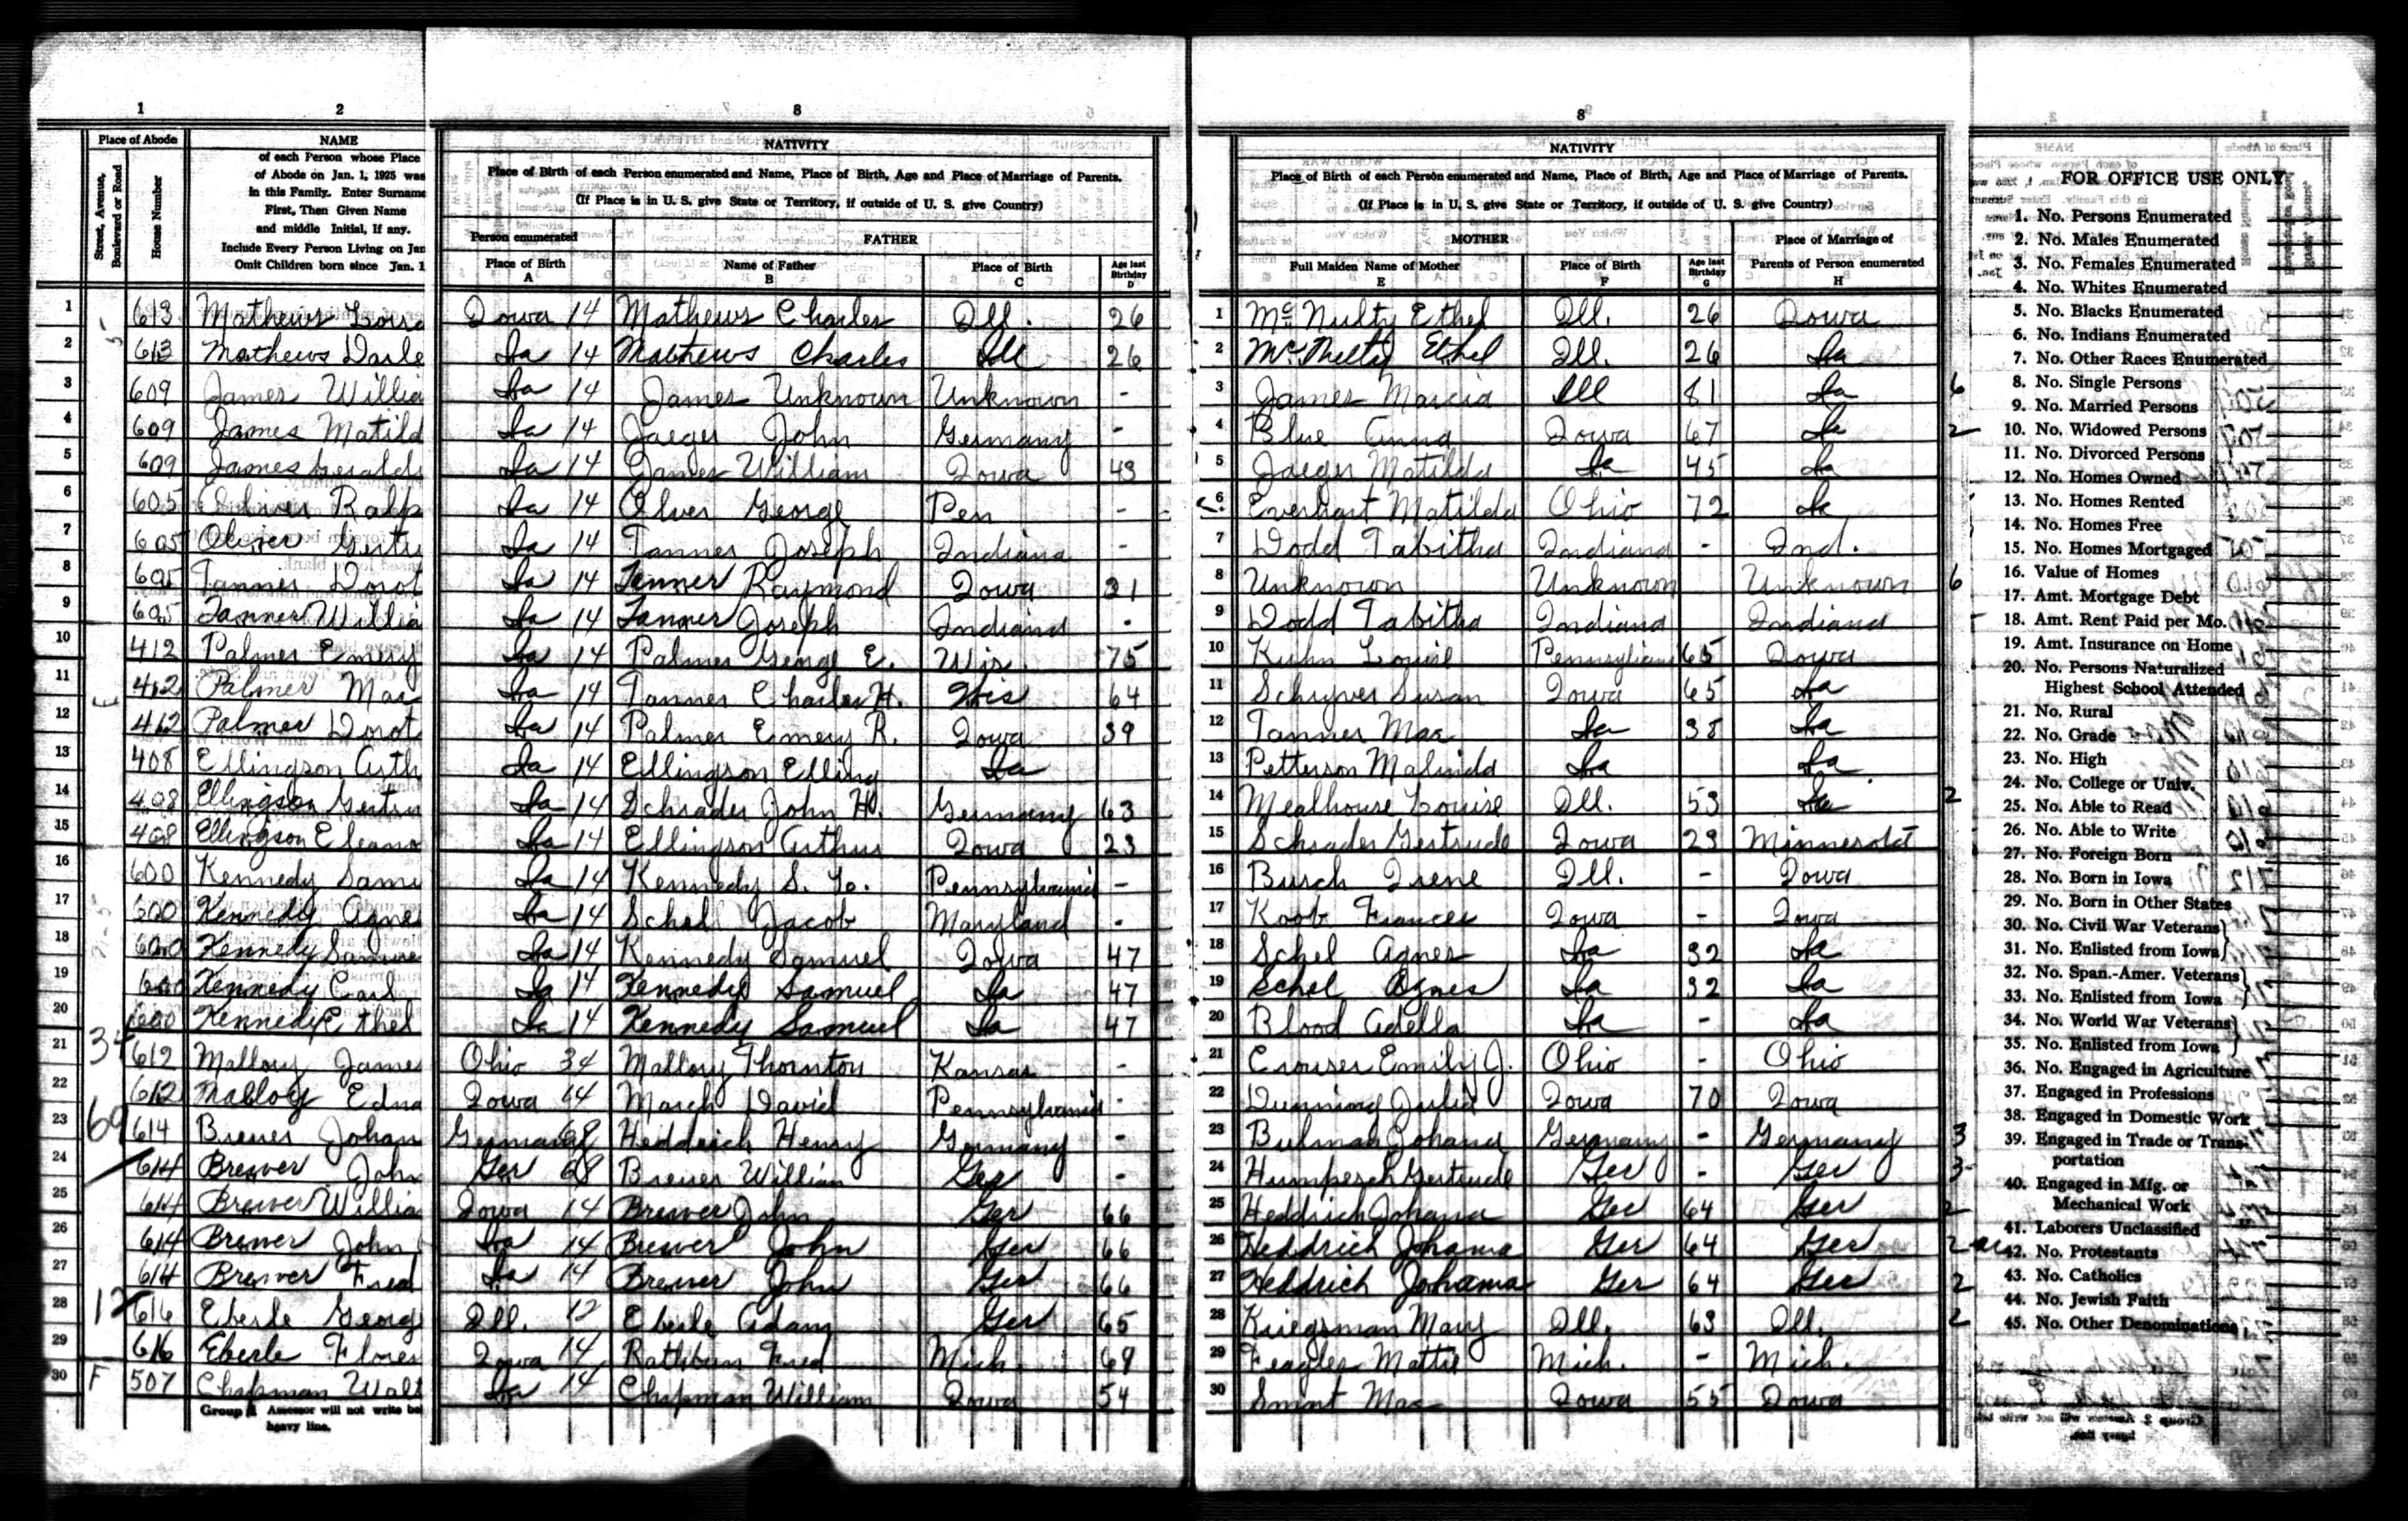 1 2 8 8
Place of Abode
Street, Avenue, Boulevard or Road
House Number
NAME
of each Person whose Place
of Abode on Jan. 1, 1925 was
in this Family. Enter Surname
First, Then Given Name
and middle Initial, if any.
Include Every Person Living on Jan
Omit Children born since Jan. 1
NATIVITY
Place of Birth of each Person enumerated and Name, Place of Birth, Age and Place of Marriage of Parents.
(If Place is in U. S. give State or Territory, if outside of U. S. give Country)
Person enumerated FATHER
Place of Birth A Name of Father B Place of Birth C Age last Birthday D
NATIVITY
Place of Birth of each Person enumerated and Name, Place of Birth, Age and Place of Marriage of Parents.
(If Place is in U. S. give State or Territory, if outside of U. S. give Country)
MOTHER Place of Marriage of
Full Maiden Name of Mother E Place of Birth F Age last Birthday G Parents of Person enumerated H
1 613 Mathews Iowa 14 Mathews Charles Ill. 26 1 McNulty Ethel Ill. 26 Iowa
2 613 Mathews Darle Ia 14 Mathews Charles Ill 26 2 McNulty Ethel Ill. 26 Ia
3 609 James Willia Ia 14 James Unknown Unknown - 3 James Marcia Ill 81 Ia 6
4 609 James Matild Ia 14 Jaeger John Germany - 4 Blue Anna Iowa 67 Ia 2
5 609 James Ia 14 James William Iowa 43 5 Jaeger Matilda Ia 45 Ia
6 605 Oliver Ralp Ia 14 Olver George Pen - 6 Everhart Matilda Ohio 72 Ia
7 605 Oliver Gertru Ia 14 Tanner Joseph Indiana - 7 Dodd Tabitha Indiana - Ind.
8 605 Tanner Dorot Ia 14 Tanner Raymond Iowa 31 8 Unknown Unknown Unknown 6
9 605 Tanner Willia Ia 14 Tanner Joseph Indiana - 9 Dodd Tabitha Indiana Indiana
10 412 Palmer Emery Ia 14 Palmer George E. Wis. 75 10 Kuhn Louise Pennsylvania 65 Iowa
11 412 Palmer Mae Ia 14 Tanner Charles H. Wis 64 11 Schryver Susan Iowa 65 Ia
12 412 Palmer Dorot Ia 14 Palmer Emery R. Iowa 39 12 Tanner Mae Ia 38 Ia
13 408 Ellingson Arth Ia 14 Ellingson Elling Ia 13 Petterson Malinda Ia Ia
14 408 Ellingson Gertru Ia 14 Schrader John H. Germany 63 14 Mealhouse Louise Ill. 53 Ia 2
15 408 Ellingson Eleano Ia 14 Ellingson Arthur Iowa 23 15 Schrader Gertrude Iowa 23 Minnesota
16 600 Kennedy Samu Ia 14 Kennedy S. Pennsylvania - 16 Busch Irene Ill. - Iowa
17 600 Kennedy Agne Ia 14 Schel Jacob Maryland - 17 Koob Frances Iowa - Iowa
18 600 Kennedy Samue Ia 14 Kennedy Samuel Iowa 47 18 Schel Agnes Ia 32 Ia
19 600 Kennedy Carl Ia 14 Kennedy Samuel Ia 47 19 Schel Agnes Ia 32 Ia
20 600 Kennedy Ethel Ia 14 Kennedy Samuel Ia 47 20 Blood Adella Ia - Ia
21 34 612 Mallory James Ohio 34 Mallory Thornton Kansas - 21 Crouser Emily J. Ohio - Ohio
22 612 Mallory Edna Iowa 14 March David Pennsylvania - 22 Dunning Julia Iowa 70 Iowa
23 69 614 Brewer Johan Germany 69 Heddrich Henry Germany - 23 Bulman Johana Germany - Germany 3
24 614 Brewer John Ger 69 Brewer William Ger - 24 Humpesch Gertrude Ger - Ger 3
25 614 Brewer Willia Iowa 14 Brewer John Ger 66 25 Heddrich Johana Ger 64 Ger 2
26 614 Brewer John Ia 14 Brewer John Ger 66 26 Heddrich Johana Ger 64 Ger 2
27 614 Brewer Fred Ia 14 Brewer John Ger 66 27 Heddrich Johana Ger 64 Ger 2
28 12 616 Eberle Georg Ill. 12 Eberle Adam Ger 65 28 Kriegsman Mary Ill. 63 Ill. 2
29 616 Eberle Floren Iowa 14 Rathbun Fred Mich. 69 29 Feagles Mattie Mich. - Mich.
30 F 507 Chapman Walt Ia 14 Chapman William Iowa 54 30 Smart Mae Iowa 55 Iowa
Group 1 Assessor will not write be
heavy line.
FOR OFFICE USE ONLY
1. No. Persons Enumerated
2. No. Males Enumerated
3. No. Females Enumerated
4. No. Whites Enumerated
5. No. Blacks Enumerated
6. No. Indians Enumerated
7. No. Other Races Enumerated
8. No. Single Persons
9. No. Married Persons
10. No. Widowed Persons
11. No. Divorced Persons
12. No. Homes Owned
13. No. Homes Rented
14. No. Homes Free
15. No. Homes Mortgaged
16. Value of Homes
17. Amt. Mortgage Debt
18. Amt. Rent Paid per Mo.
19. Amt. Insurance on Home
20. No. Persons Naturalized
Highest School Attended
21. No. Rural
22. No. Grade
23. No. High
24. No. College or Univ.
25. No. Able to Read
26. No. Able to Write
27. No. Foreign Born
28. No. Born in Iowa
29. No. Born in Other States
30. No. Civil War Veterans
31. No. Enlisted from Iowa
32. No. Span.-Amer. Veterans
33. No. Enlisted from Iowa
34. No. World War Veterans
35. No. Enlisted from Iowa
36. No. Engaged in Agriculture
37. Engaged in Professions
38. Engaged in Domestic Work
39. Engaged in Trade or Trans-
portation
40. Engaged in Mfg. or
Mechanical Work
41. Laborers Unclassified
42. No. Protestants
43. No. Catholics
44. No. Jewish Faith
45. No. Other Denominations